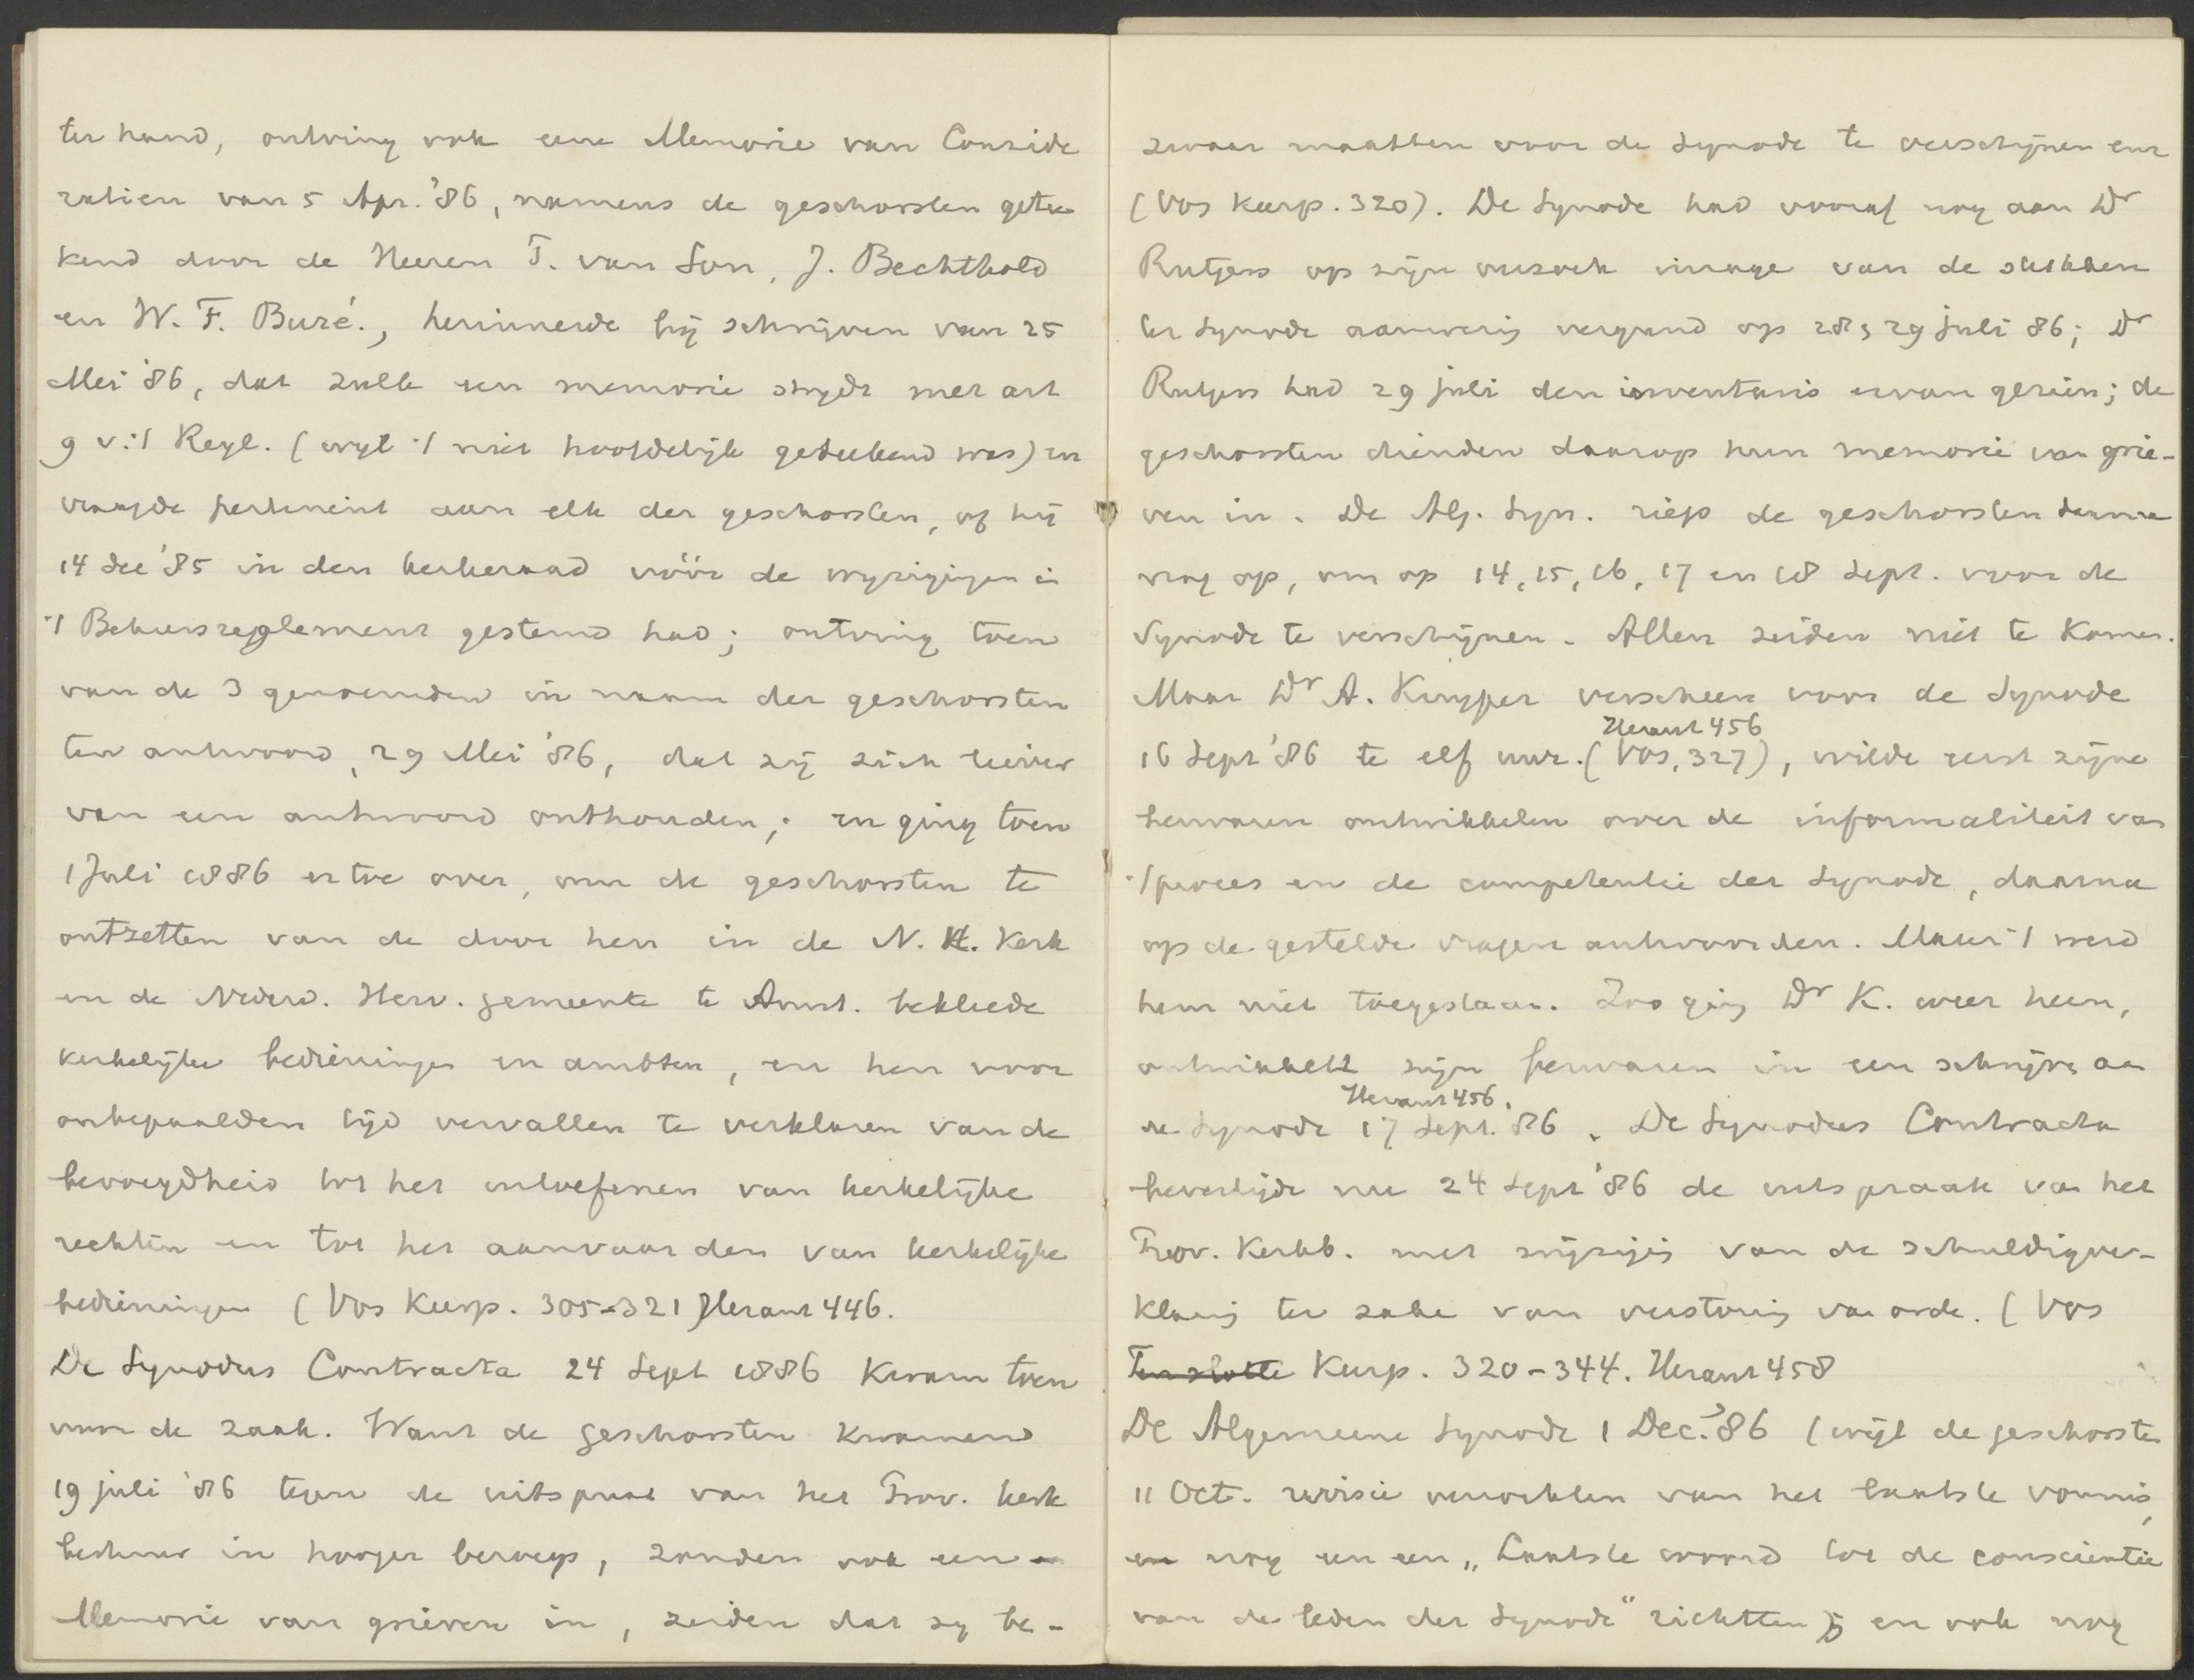 ter hand, ontving ook eene Memorie van Conside
ratien van 5 Apr. '86, namens de geschorsten getee
kend door de Heeren T. van Son, J. Bechthold
en W. F. Buré., herinnerde bij schrijven van 25
Mei '86, dat zulk een memorie strydt met art
9 v. 't Regl. (wyl 't niet hoofdelijk geteekend was) en
vraagde pertinent aan elk der geschorsten, of hij
14 dec '85 in den kerkeraad vóór de wyzigingen in
't Beheersreglement gestemd had; ontving toen
van de 3 genoemden in naam der geschorsten
ten antwoord, 29 Mei '86, dat zij zich liever
van een antwoord onthouden; en ging toen
1 Juli 1886 er toe over, om de geschorsten te
ontzetten van de door hen in de N. H. Kerk
en de Nederd. Herv. gemeente te Amst. bekleede
kerkelijke bedieningen en ambten, en hen voor
onbepaalden tijd vervallen te verklaren van de
bevoegdheid tot het uitoefenen van kerkelijke
rechten en tot het aanvaarden van kerkelijke
bedieningen (Vos Keerp. 305-321) Heraut 446.
De Synodus Contracta 24 Sept 1886 kwam toen
voor de zaak. Want de geschorsten kwamen
19 juli '86 tegen de uitspraak van het Prov. kerk
bestuur in hooger beroep, zonden ook een
Memorie van grieven in, zeiden dat zy be-
zwaar maakten voor de Synode te verschijnen enz
(Vos Keerp. 320). De Synode had vooraf nog aan Dr
Rutgers op zijn verzoek inzage van de stukken
ter Synode aanwezig vergund op 28 & 29 juli 86; Dr
Rutgers had 29 juli den inventaris ervan gezien; de
geschorsten dienden daarop hun memorie van grie-
ven in. De Alg. Syn. riep de geschorsten daarna
nog op, om op 14, 15, 16, 17 en 18 Sept. voor de
Synode te verschijnen. Allen zeiden niet te komen.
Maar Dr A. Kuyper verscheen voor de Synode
Heraut 456
16 Sept '86 te elf uur. (Vos, 327), wilde eerst zijne
bezwaren ontwikkelen over de informaliteit van
't proces en de competentie der Synode, daarna
op de gestelde vragen antwoorden. Maar 't werd
hem niet toegestaan. Zoo ging Dr K. weer heen,
ontwikkelt zijn bezwaren in een schrijven aan
Heraut 456.
de Synode 17 Sept. '86. De Synodus Contracta
bevestigde nu 24 Sept '86 de uitspraak van het
Prov. Kerkb. met wijziging van de schuldigver-
klaring ter zake van verstoring van orde. (Vos
Ten slotte Keerp. 320-344. Heraut 458
De Algemeene Synode 1 Dec. '86 (wijl de geschorsten
11 Oct. revisie verzochten van het laatste vonnis,
en nog een een „Laatste woord tot de conscientie
van de leden der Synode" richtten); en ook nog